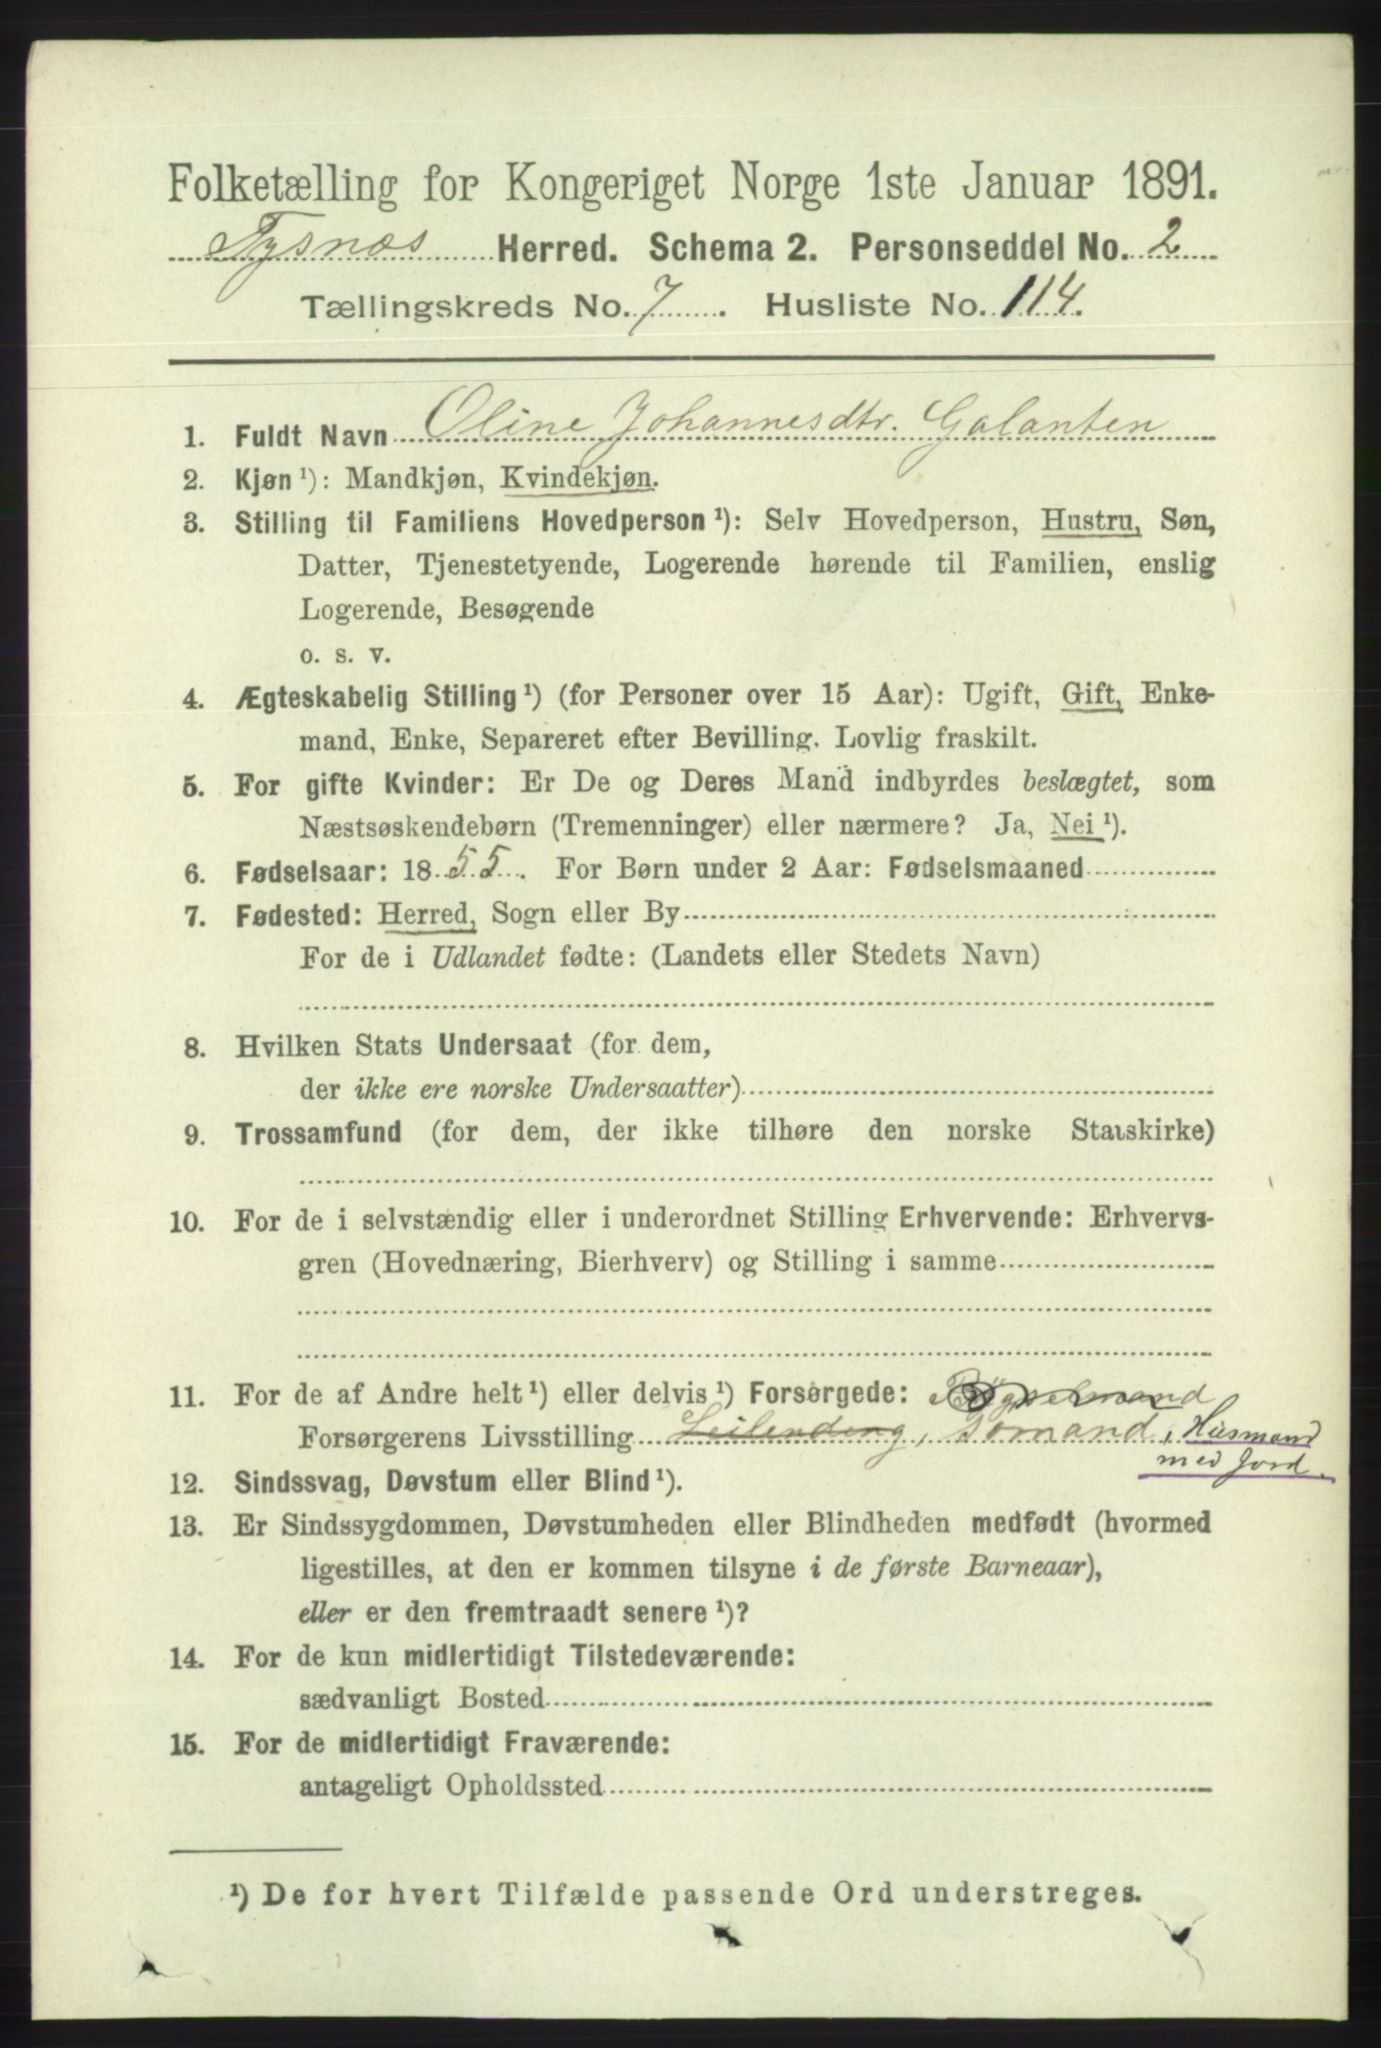 Folketælling for Kongeriget Norge 1ste Januar 1891.
Tysnæs Herred. Schema 2. Personseddel No. 2
Tællingskreds No. 7. Husliste No. 114.
1. Fuldt Navn Oline Johannesdtr. Galanten
2. Kjøn ¹): Mandkjøn, Kvindekjøn.
3. Stilling til Familiens Hovedperson ¹): Selv Hovedperson, Hustru, Søn,
Datter, Tjenestetyende, Logerende hørende til Familien, enslig
Logerende, Besøgende
o. s. v.
4. Ægteskabelig Stilling ¹) (for Personer over 15 Aar): Ugift, Gift, Enke-
mand, Enke, Separeret efter Bevilling. Lovlig fraskilt.
5. For gifte Kvinder: Er De og Deres Mand indbyrdes beslægtet, som
Næstsøskendebørn (Tremenninger) eller nærmere? Ja, Nei ¹).
6. Fødselsaar: 1855. For Børn under 2 Aar: Fødselsmaaned
7. Fødested: Herred, Sogn eller By
For de i Udlandet fødte: (Landets eller Stedets Navn)
8. Hvilken Stats Undersaat (for dem,
der ikke ere norske Undersaatter)
9. Trossamfund (for dem, der ikke tilhøre den norske Statskirke)
10. For de i selvstændig eller i underordnet Stilling Erhvervende: Erhvervs-
gren (Hovednæring, Bierhverv) og Stilling i samme
11. For de af Andre helt ¹) eller delvis ¹) Forsørgede: Bøgselmand
Forsørgerens Livsstilling Leilending, Sømand, Husmand
med Jord.
12. Sindssvag, Døvstum eller Blind ¹).
13. Er Sindssygdommen, Døvstumheden eller Blindheden medfødt (hvormed
ligestilles, at den er kommen tilsyne i de første Barneaar),
eller er den fremtraadt senere ¹)?
14. For de kun midlertidigt Tilstedeværende:
sædvanligt Bosted
15. For de midlertidigt Fraværende:
antageligt Opholdssted
¹) De for hvert Tilfælde passende Ord understreges.